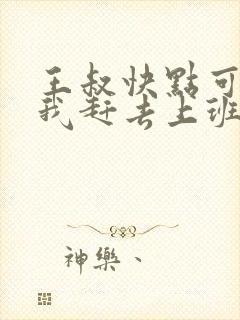 王叔快點可
我趕去上班
神樂、